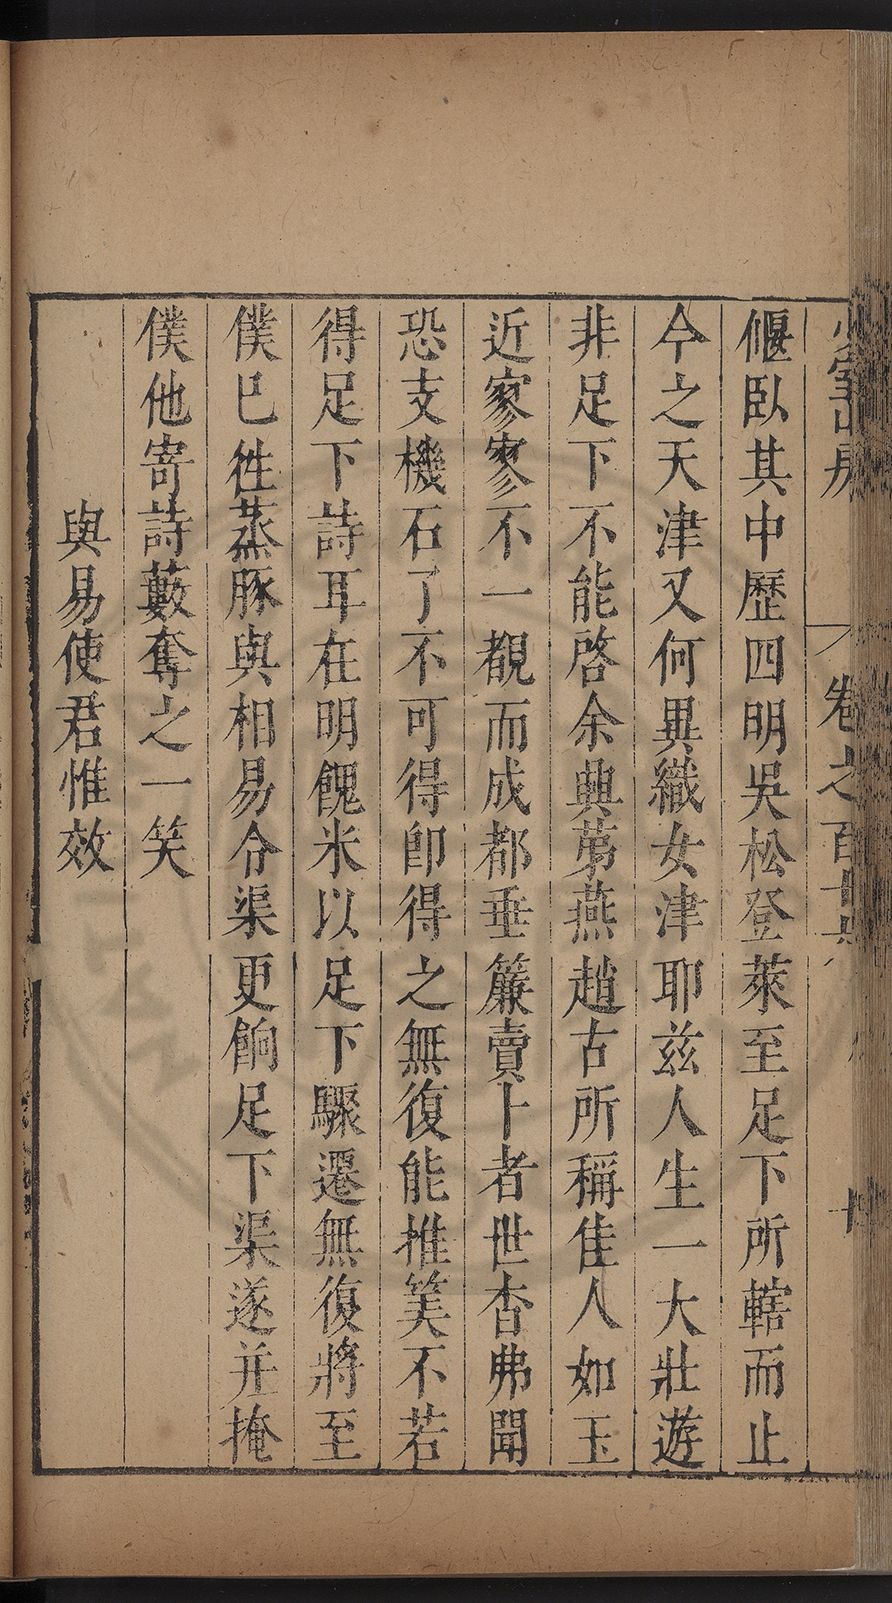 少室山房
卷之百十
偃臥其中歷四明吳松登萊至足下所轄而止
今之天津又何異織女津耶兹人生一大壯遊
非足下不能啓余興第燕趙古所稱佳人如玉
近寥寥不一覩而成都垂簾賣卜者世杳弗聞
恐支機石了不可得卽得之無復能推筭不若
得足下詩耳在明餽米以足下驟遷無復將至
僕巳徃蒸豚與相易令渠更餉足下渠遂并掩
僕他寄詩藪奪之一笑
與易使君惟效